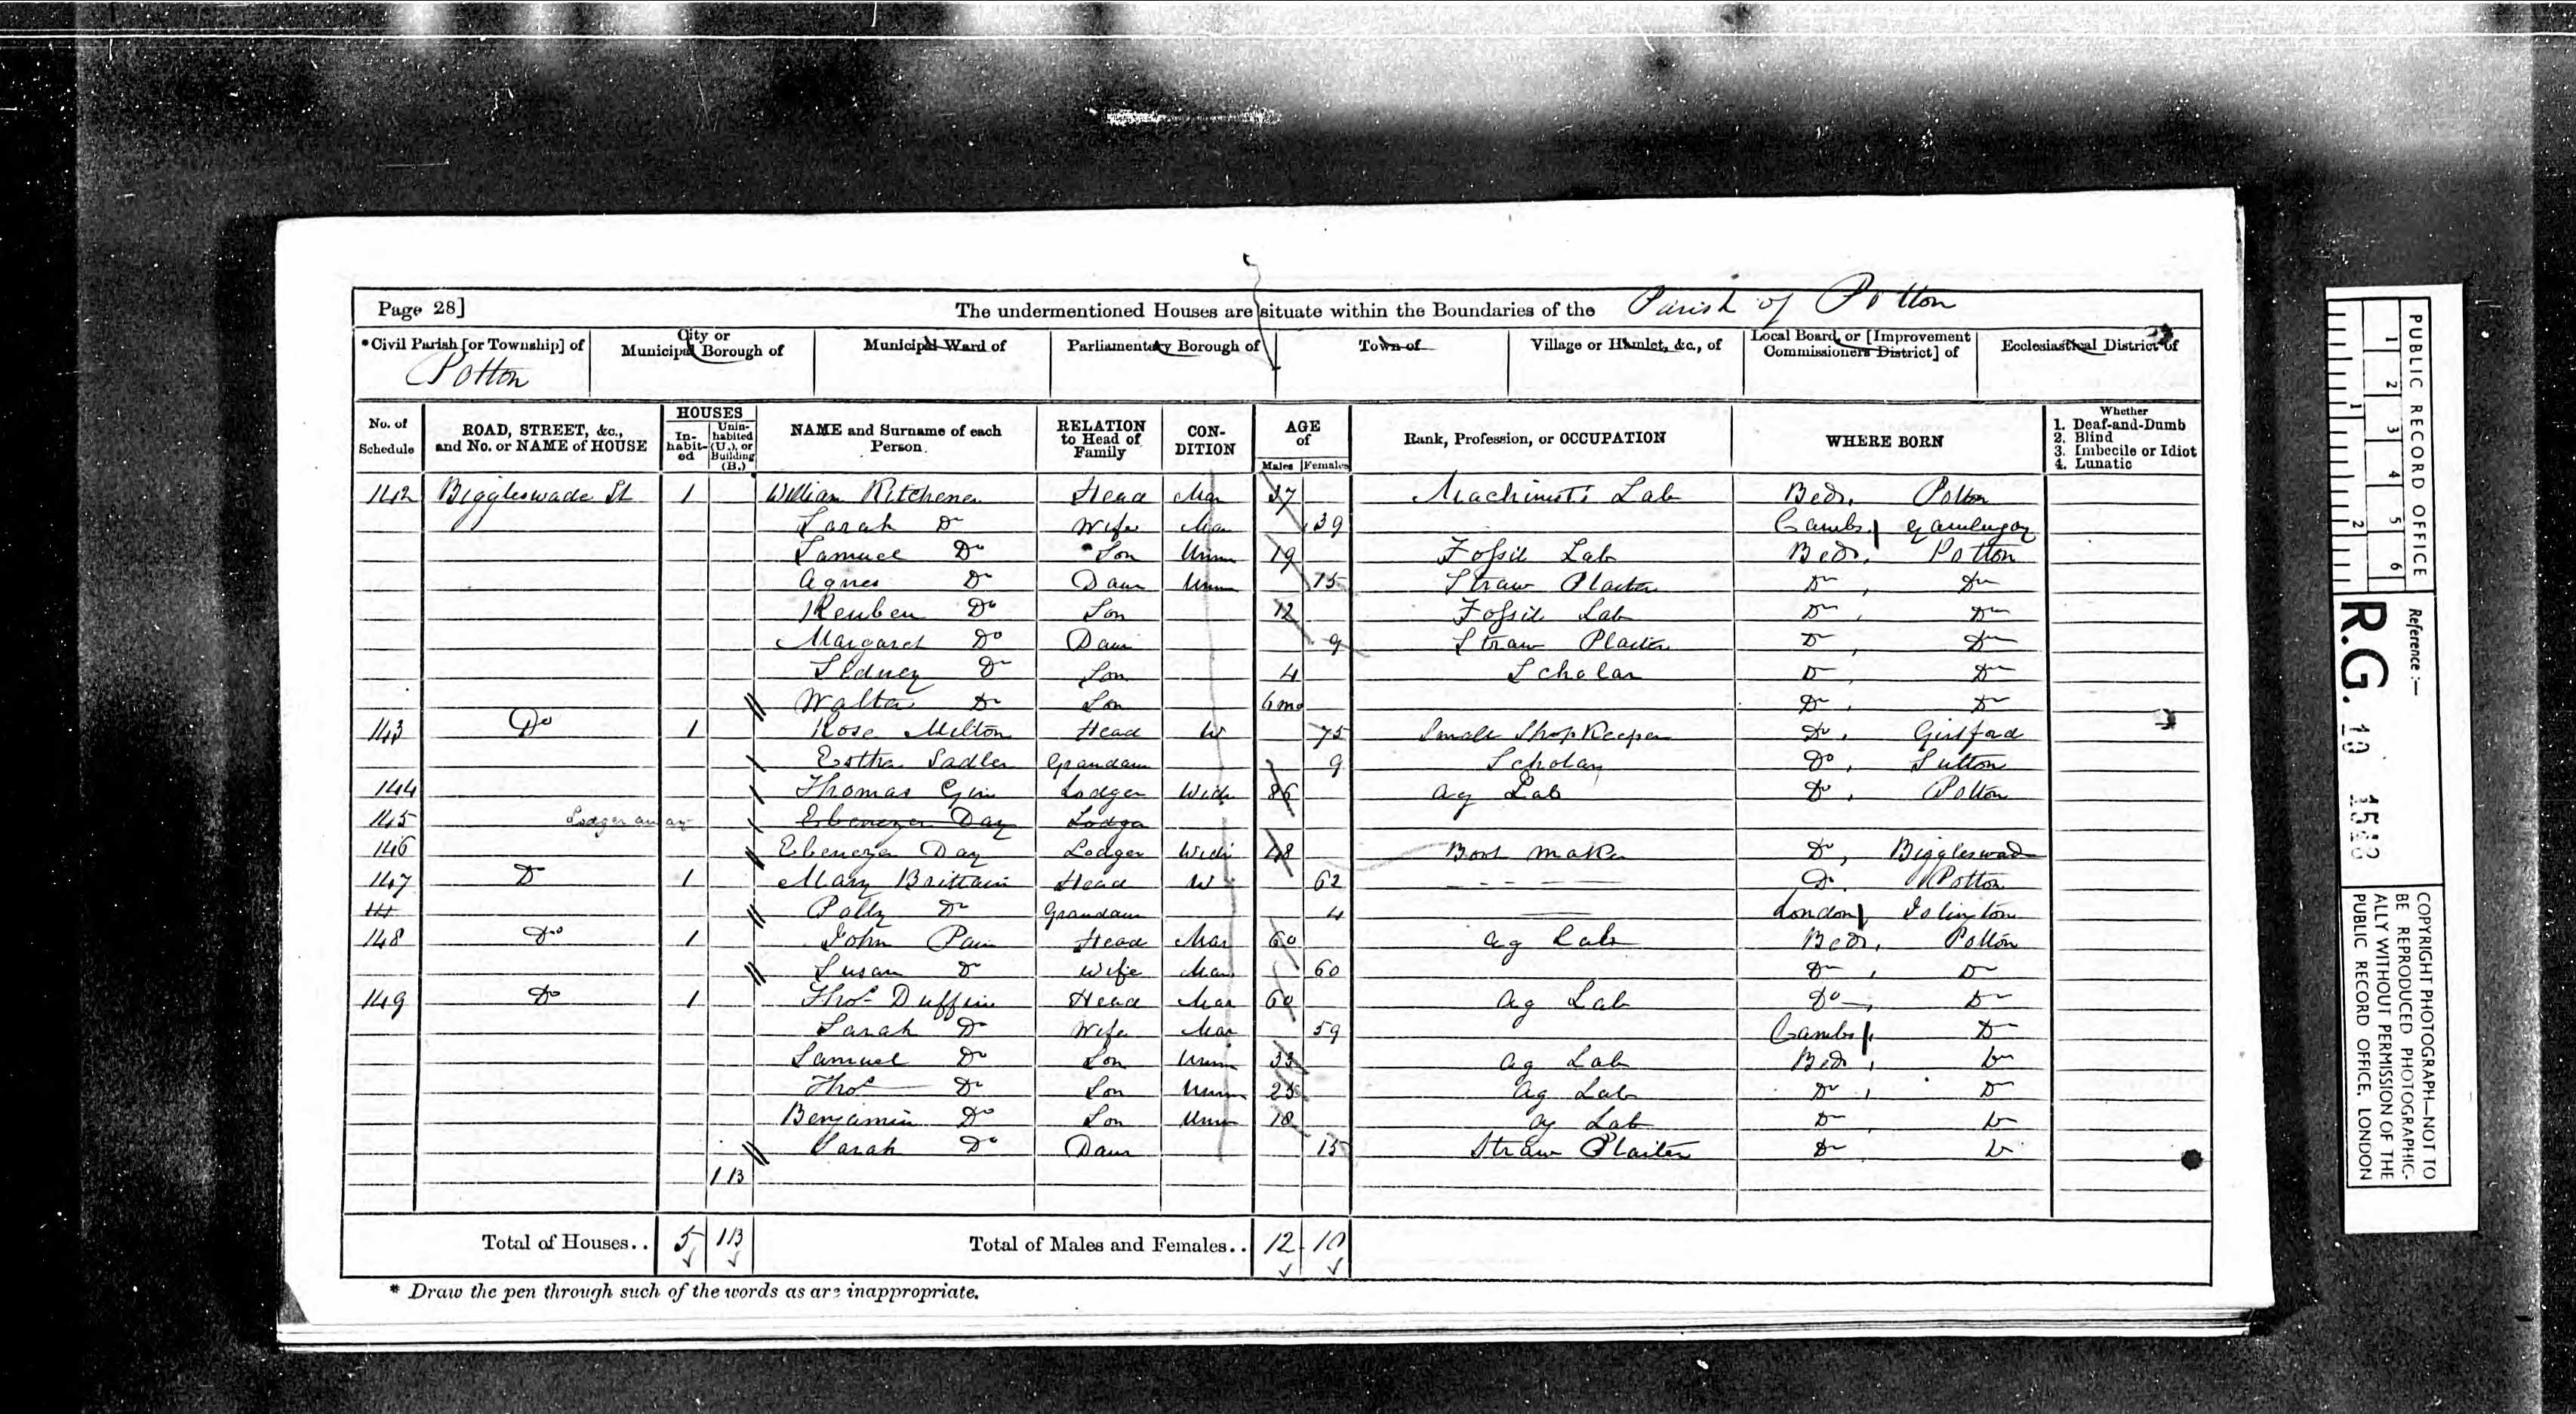 Page 28]
The undermentioned Houses are situate within the Boundaries of the Parish of Potton
*Civil Parish [or Township] of
Potton
City or Municipal Borough of
Municipal Ward of
Parliamentary Borough of
Town of
Village or Hamlet, &c., of
Local Board, or [Improvement Commissioners District] of
Ecclesiastical District of
No. of Schedule
ROAD, STREET, &c., and No. or NAME of HOUSE
HOUSES
In-habit-ed
Unin-habited (U.), or Building (B.)
NAME and Surname of each Person
RELATION to Head of Family
CON-DITION
AGE of
Males Females
Rank, Profession, or OCCUPATION
WHERE BORN
Whether
1. Deaf-and-Dumb
2. Blind
3. Imbecile or Idiot
4. Lunatic
142 Biggleswade St 1 William Kitchener Head Mar 37 Machinist's Lab Beds, Potton
Sarah Do Wife Mar 39 Cambs, Gamlingay
Samuel Do Son Unm 19 Fossil Lab Beds, Potton
Agnes Do Daur Unm 15 Straw Plaiter Do, Do
Reuben Do Son 12 Fossil Lab Do, Do
Margaret Do Daur 9 Straw Plaiter Do, Do
Sidney Do Son 4 Scholar Do, Do
Walter Do Son 6mo Do, Do
143 Do 1 Rose Milton Head W 75 Small Shop Keeper Do, Girtford
Esther Sadler Grandaur 9 Scholar Do, Sutton
144 Thomas Lodger Widr 86 Ag Lab Do, Potton
145 Lodger away Ebenezer Day Lodger
146 Ebenezer Day Lodger Widr 48 Boot Maker Do, Biggleswade
147 Do 1 Mary Brittain Head W 62 Do, Potton
Polly Do Grandaur 4 London, Islington
148 Do 1 John Pain Head Mar 60 Ag Lab Beds, Potton
Susan Do Wife Mar 60 Do, Do
149 Do 1 Thos Duffin Head Mar 60 Ag Lab Do, Do
Sarah Do Wife Mar 59 Cambs, Do
Samuel Do Son Unm 33 Ag Lab Beds, Do
Thos Do Son Unm 25 Ag Lab Do, Do
Benjamin Do Son Unm 18 Ag Lab Do, Do
Sarah Do Daur 15 Straw Plaiter Do, Do
1B
Total of Houses.. 5 1B Total of Males and Females.. 12 10
* Draw the pen through such of the words as are inappropriate.
PUBLIC RECORD OFFICE
1 2 3 4 5 6
1 2
Reference :—
R.G. 10
COPYRIGHT PHOTOGRAPH—NOT TO
BE REPRODUCED PHOTOGRAPHIC-
ALLY WITHOUT PERMISSION OF THE
PUBLIC RECORD OFFICE, LONDON